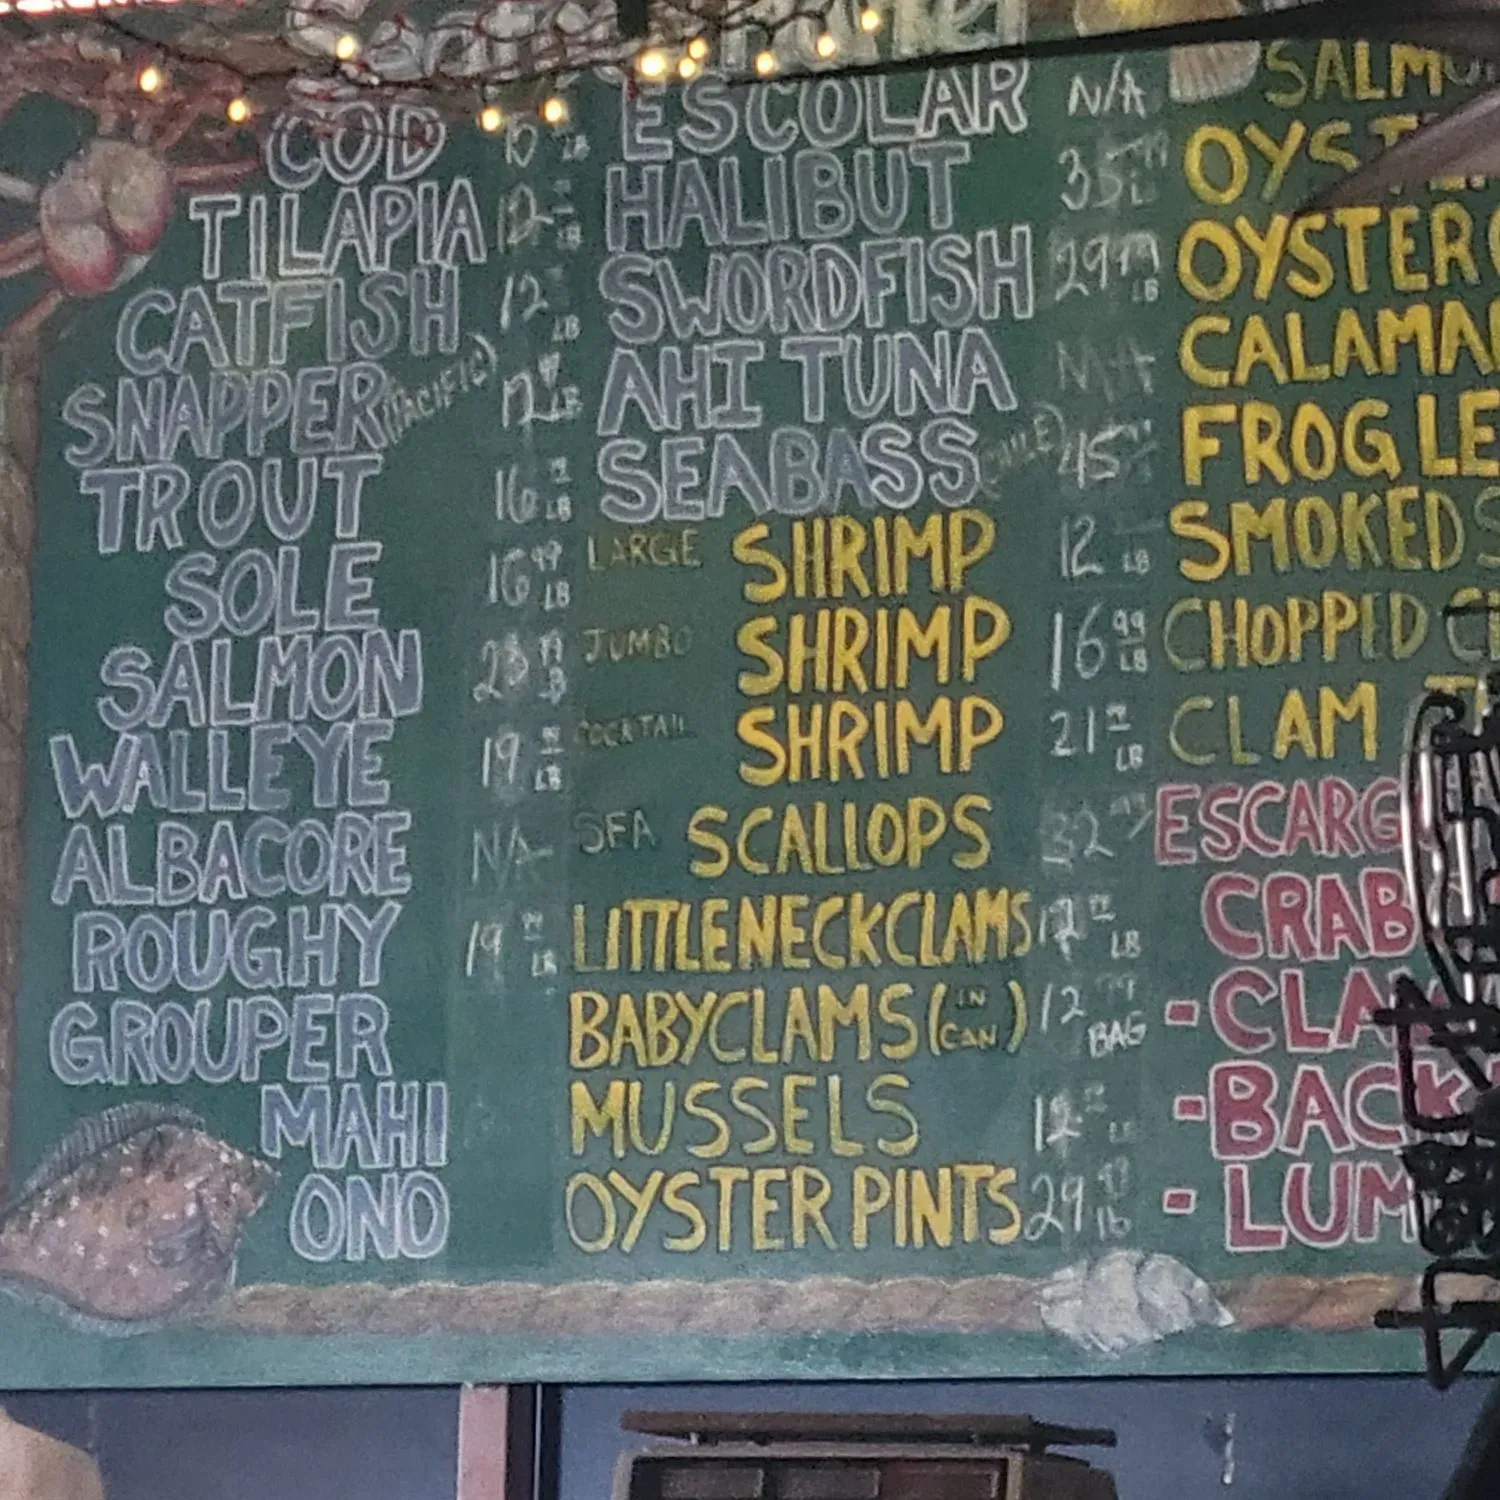 COD
TILAPIA 12 LB
CATFISH 12 LB
SNAPPER (PACIFIC) 12 LB
TROUT 16 LB
SOLE 16 99 LB
SALMON 23 99 LB
WALLEYE 19 LB
ALBACORE N/A
ROUGHY 19 LB
GROUPER
MAHI
ONO
ESCOLAR N/A
HALIBUT 35 LB
SWORDFISH 29 99 LB
AHI TUNA
SEABASS 45
LARGE SHRIMP 12 LB
JUMBO SHRIMP 16 99 LB
COCKTAIL SHRIMP 21 LB
SEA SCALLOPS 32
LITTLENECK CLAMS 12 LB
BABY CLAMS (IN CAN) 12 BAG
MUSSELS 12
OYSTER PINTS 29 lb
OYSTER
CALAMA
FROG LE
SMOKED
CHOPPED
CLAM
ESCARG
CRAB
-CLA
-BACK
- LUM